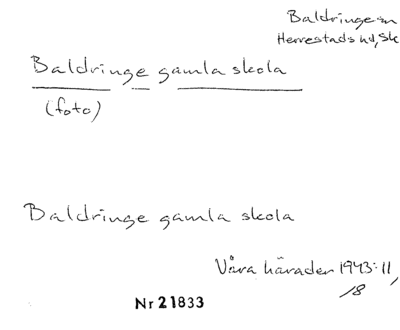 Baldringe sn
Herrestads hd, Sk
Baldringe gamla skola
(foto)
Baldringe gamla skola
Våra härader 1943:11,
18
Nr 21833